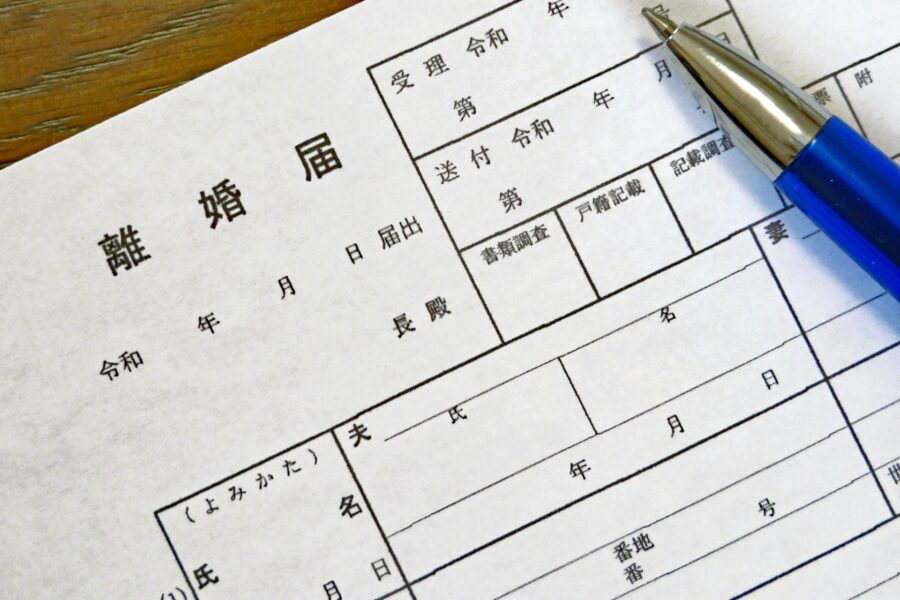 離婚届
令和 年 月 日 届出
長 殿
受理 令和 年
第 号
送付 令和 年 月 日
第
書類調査 戸籍記載 記載調査 票 附
(よみかた)
氏 名
夫 氏 名
妻
月 日
年 月 日
番地
番 号